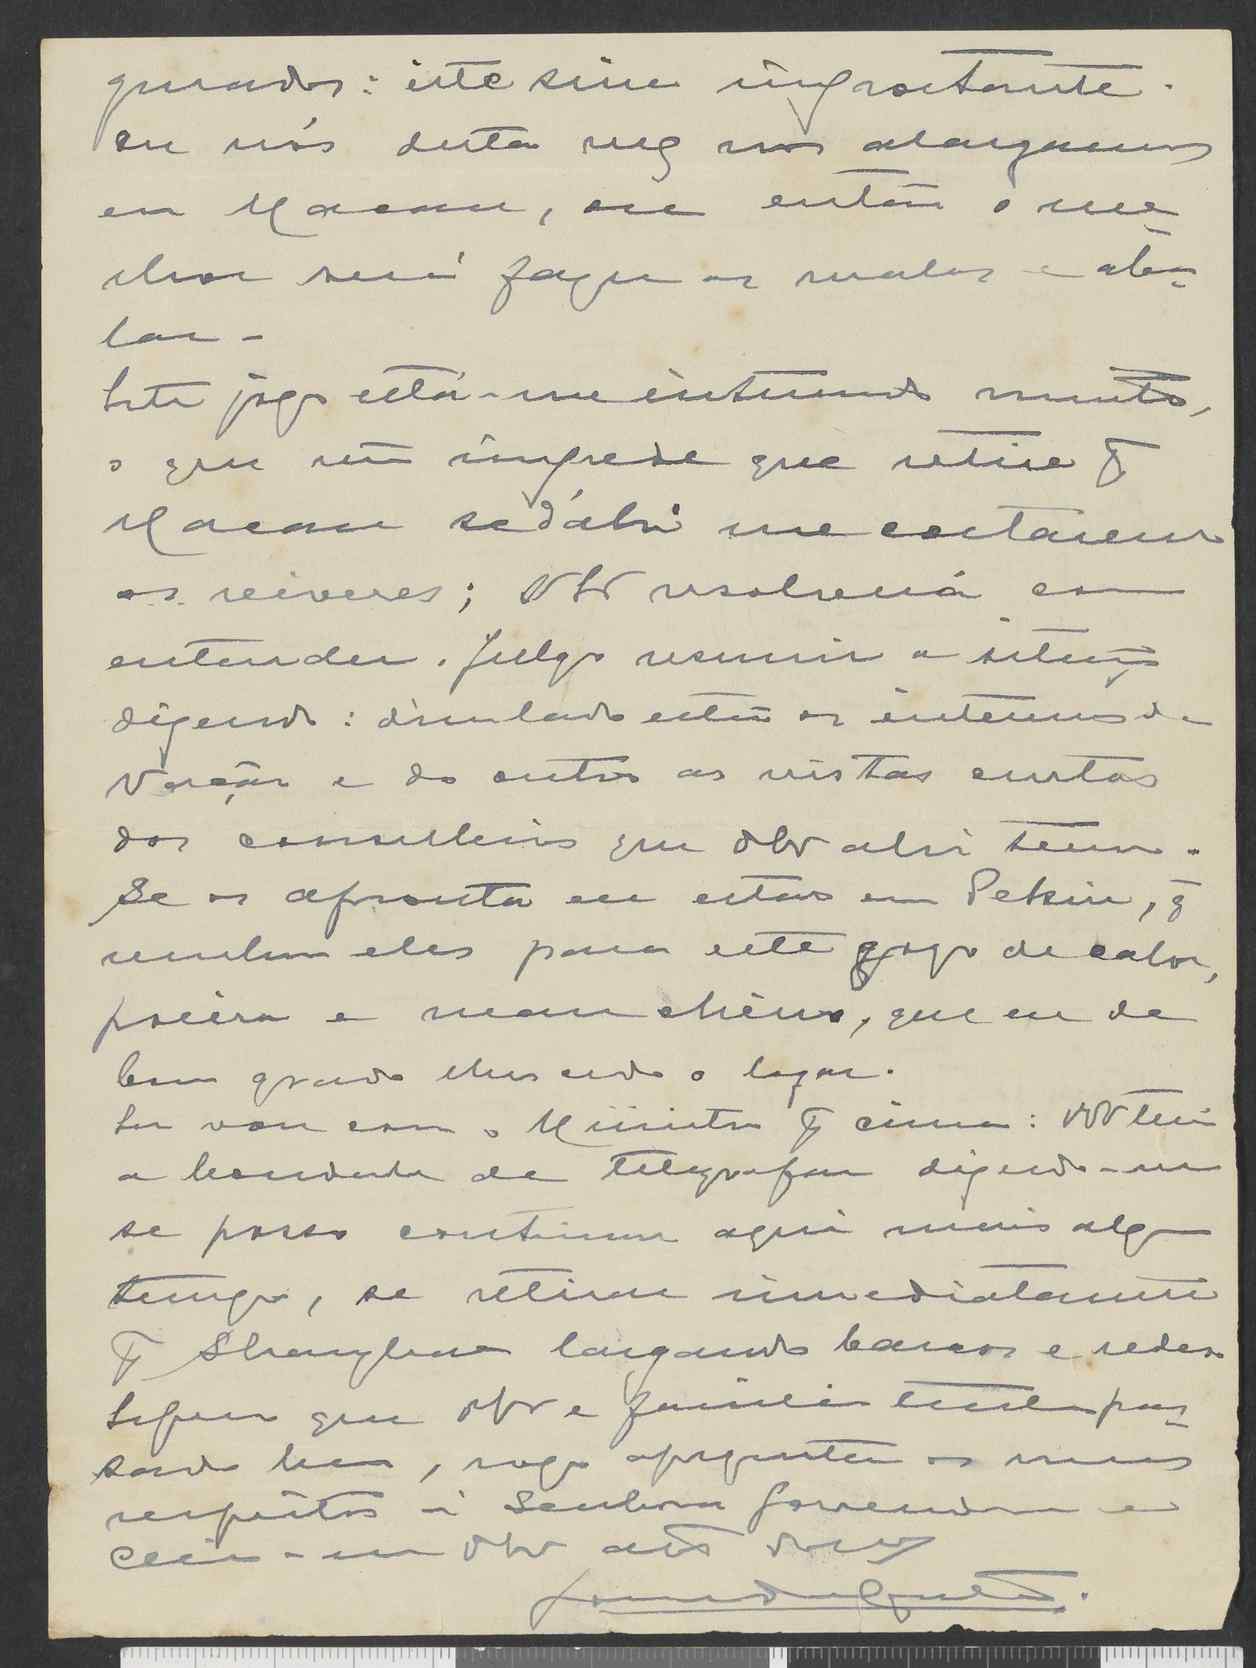 gurados: iste sim importante.
ou nós desta vez nos alargamos
em Macau, ou então o me
lhor será fazer as malas e aba
lar -
Este jogo está-me interessando muito,
o que não impede que retire pª
Macau se d'ahi me cortarem
os viveres; VExª resolverá como
entender. Julgo resumir a situação
dizendo: d'um lado estão os interesses da
Nação e do outro as vistas curtas
dos conselheiros que VExª ahi tem.
Se os afronta eu estar em Pekin, q̃
venham eles para este gozo de calor,
poeira e mau cheiro, que eu de
bom grado lhes cedo o logar.
Eu vou com o Ministro pª cima: VExª terá
a bondade de telegrafar dizendo-me
se posso continuar aqui mais algum
tempo, se retirar imediatamente
pª Shanghae largando barcos e redes.
Espero que VExª e familia tenham pas
sado bem, rogo apresentar os meus
respeitos á Senhora e
Creia-me VExª